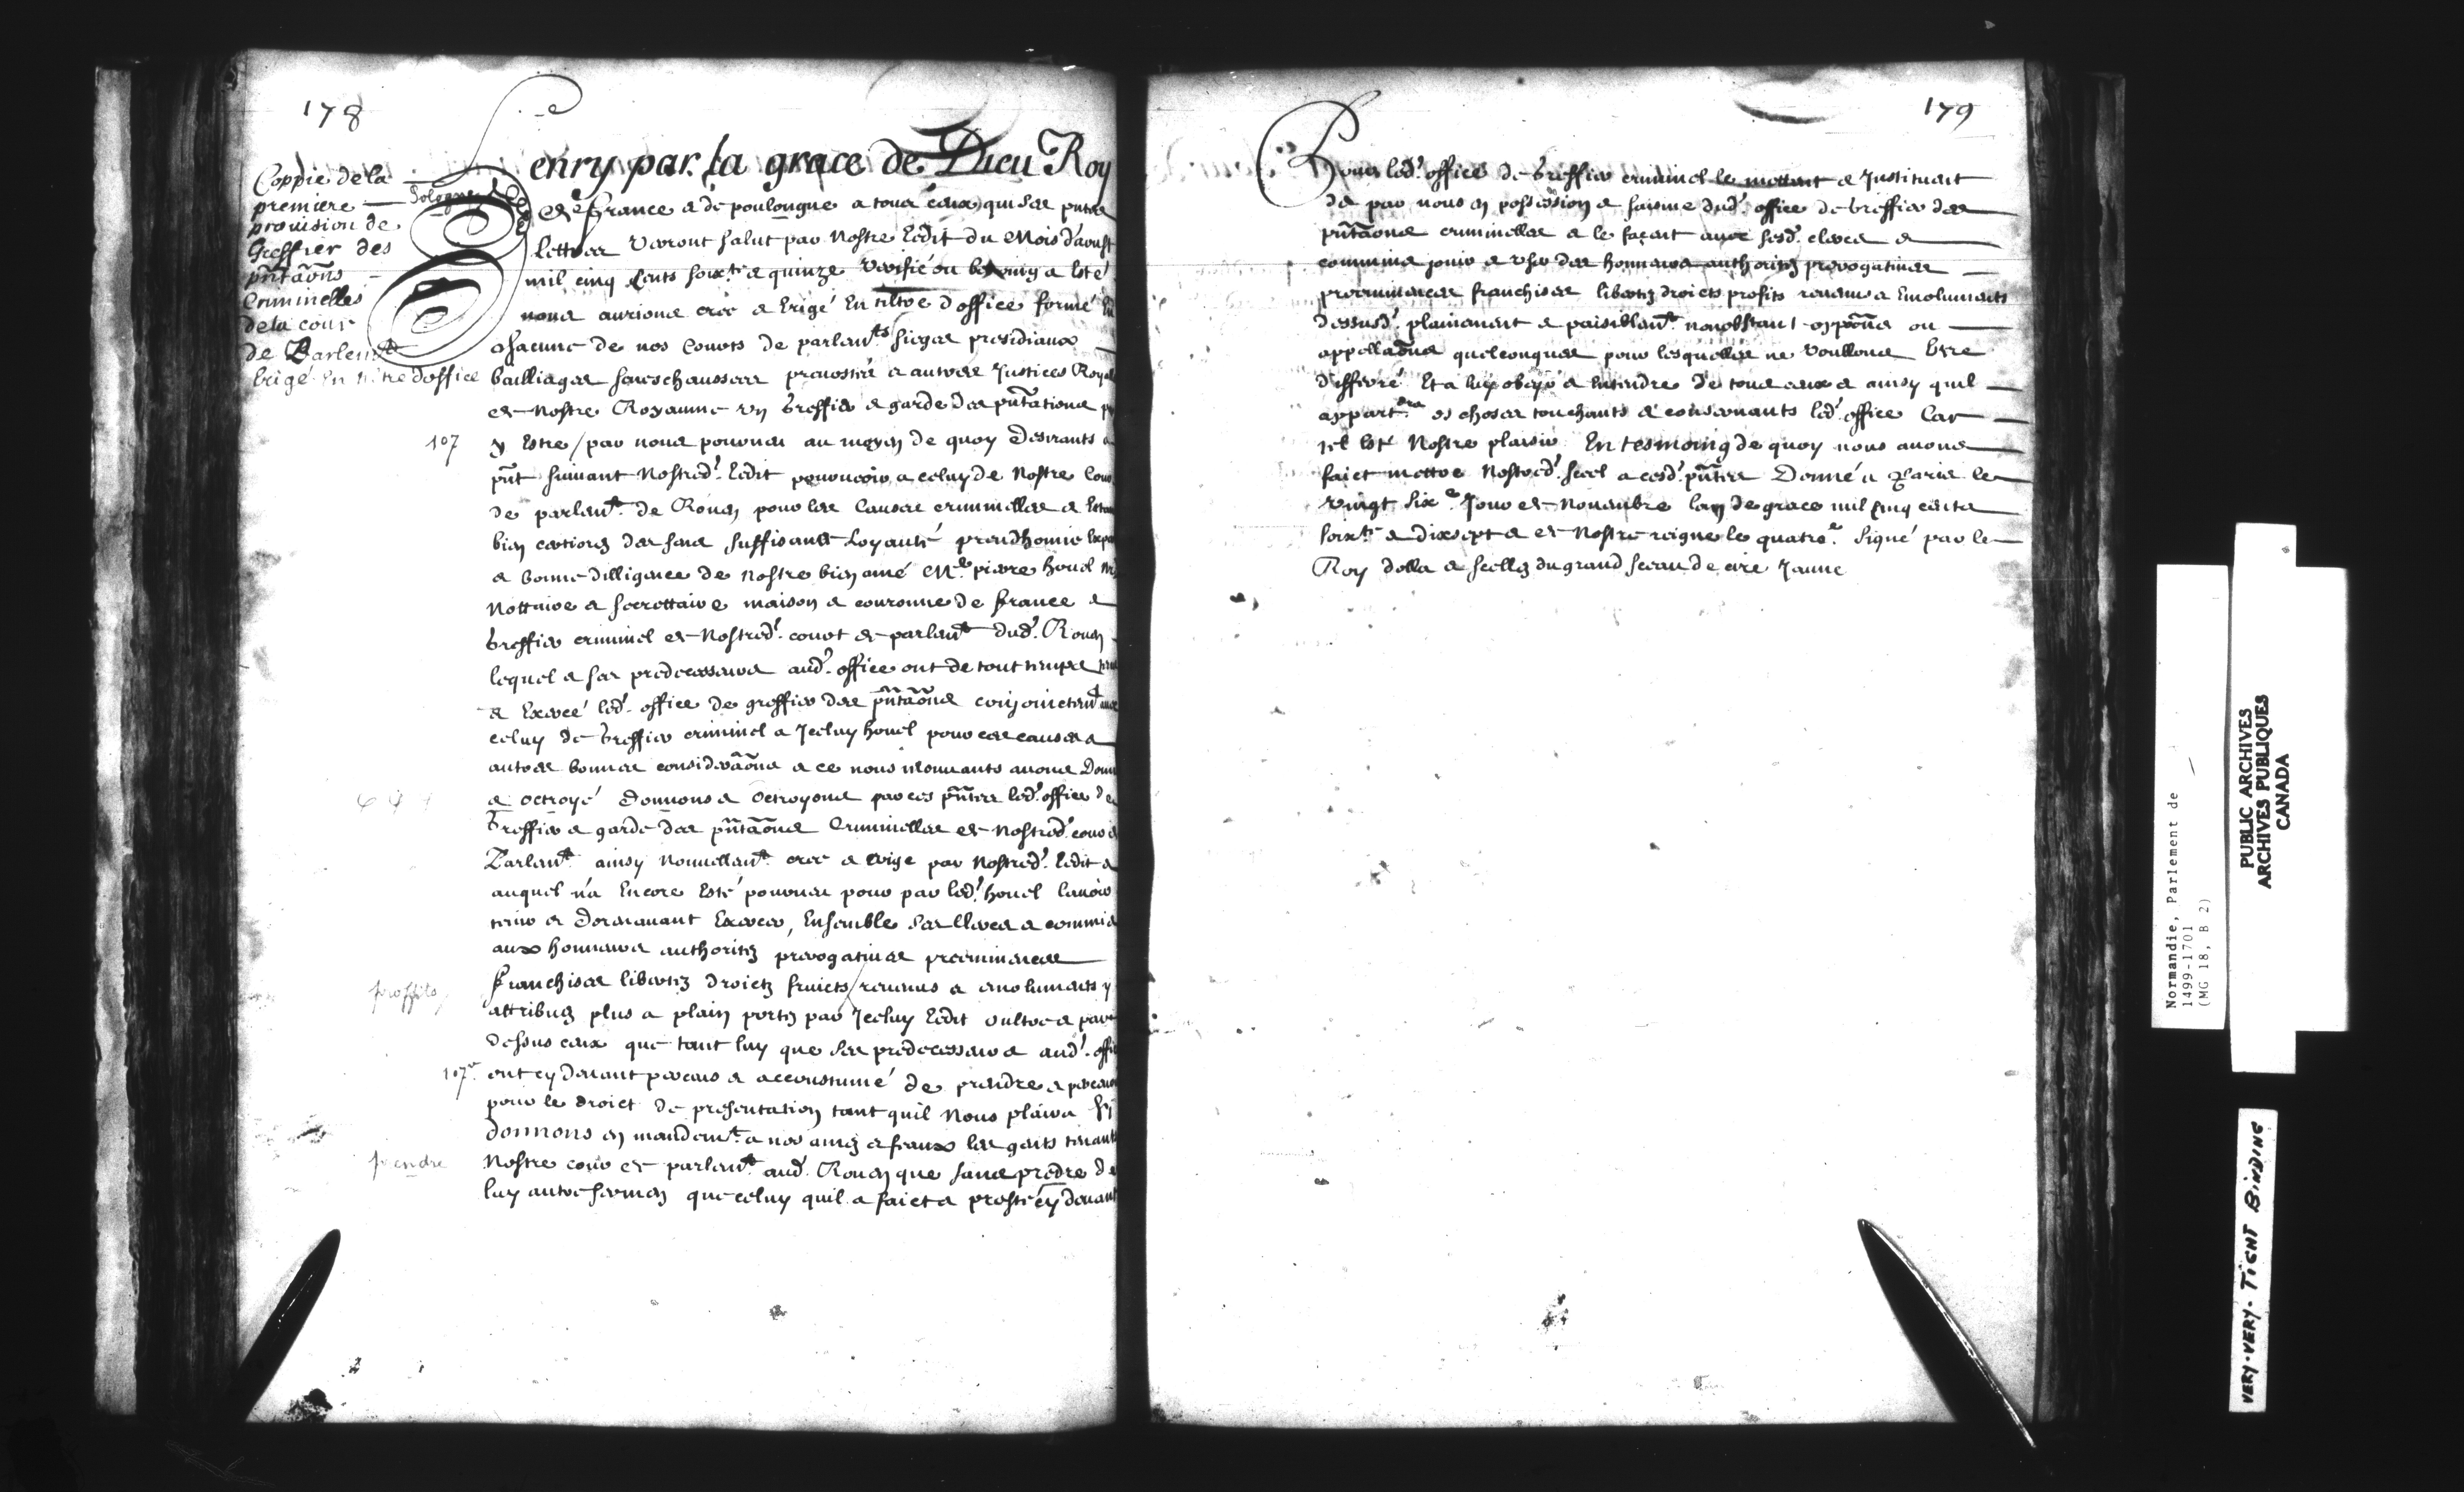 178
Coppie de la
premiere
prouision de
Greffier des
pñtãons
Criminelles
de la cour
de Parlemt
Erigé En tittre doffice
Henry par la grace de Dieu Roy
de France & de poulongne a tous ceux qui ses pñtes
lettres Verront salut par Nostre Edit du Mois d'aoust
mil cinq Cents soixte & quinze Veriffié ou besoing a Esté
nous aurions creé & Erigé En tiltre d'office formé En
chacune de nos Courts de parlemts sieges presidiaux
bailliages seneschaussees preuostés & autres Justices Royalles
de Nostre Royaume un Greffier & garde des pñtations po
107
y Estre par nous pourueu au moyen de quoy desirants a
pñt suiuant Nostred. Edit pourueoir a celuy de Nostre Cour
de parlemt de Rouen pour les Causes criminelles & Estant
bien certiorez des sens suffisance Loyauté preudhomie Exper
& bonne dilligence de Nostre bien amé Me pierre houel No
Nottaire & secrettaire maison & couronne de france &
Greffier criminel de Nostred. court de parlemt dud. Rouen
lequel & ses predecesseurs aud. office ont de tout temps tenu
& Exercé led. office de greffier des pñtãons conjoinctemt auec
celuy de Greffier criminel a Jceluy houel pour ces causes &
autres bonnes considerãons a ce nous mouuants auons Donné
& octroyé Donnons & Octroyons par ces pñtes led. office de
Greffier & garde des pñtãons Criminelles de Nostred. cour de
Parlemt ainsy Nouuellemt creé & erigé par Nostred. Edit &
auquel n'a Encore Esté pourueu pour par led. houel l'auoir
tenir & doresnauant Exercer, Ensemble ses Clercs & commis
aux honneurs authoritez prerogatiues preeminences
franchises libertez droictz fruicts / reuenus & emoluments y
proffits,
attribuez plus a plain portez par Jceluy Edit oultre & par
dessus ceux que tant luy que ses predecesseurs aud. offi
107v
ont cy deuant perceus & accoustumé de prendre & perceuoir
pour le droict de presentation tant quil Nous plaira Sy
donnons en mandemt a nos amez & feaux les gents tenants
Nostre cour de parlemt aud. Rouen que sans predre de
prendre
luy autre sermen que celuy quil a faict & presté cy deuant
179
Pour led. office de Greffier criminel le mettent & Jnstituent
de par nous en possession & saisine dud. office de Greffier des
pñtãons criminelles & le facent auec sesd. clercs &
commis jouir & user des honneurs authoritez prerogatiues
preeminences franchises libertez droicts profits reuenus & Emoluments
dessusd. plainement & paisiblemt nonobstant oppõns ou
appellãons quelconques pour lesquelles ne Voullons Estre
differé Et a luy obeyr & Entendre de tous ceux & ainsy quil
appartdra es choses touchants & conseruants led. office Car
tel Est Nostre plaisir En tesmoing de quoy nous auons
faict mettre Nostred. scel a cesd. pñtes Donné a Paris le
vingt six e Jour de Nouembre l'an de grace mil cinq cents
soixte & dixsept & de Nostre reigne le quatre. Signé par le
Roy dolla & scellez du grand sceau de cire Jaune
Normandie, Parlement de
1499-1701
(MG 18, B 2)
PUBLIC ARCHIVES
ARCHIVES PUBLIQUES
CANADA
VERY-VERY-TIGHT BINDING